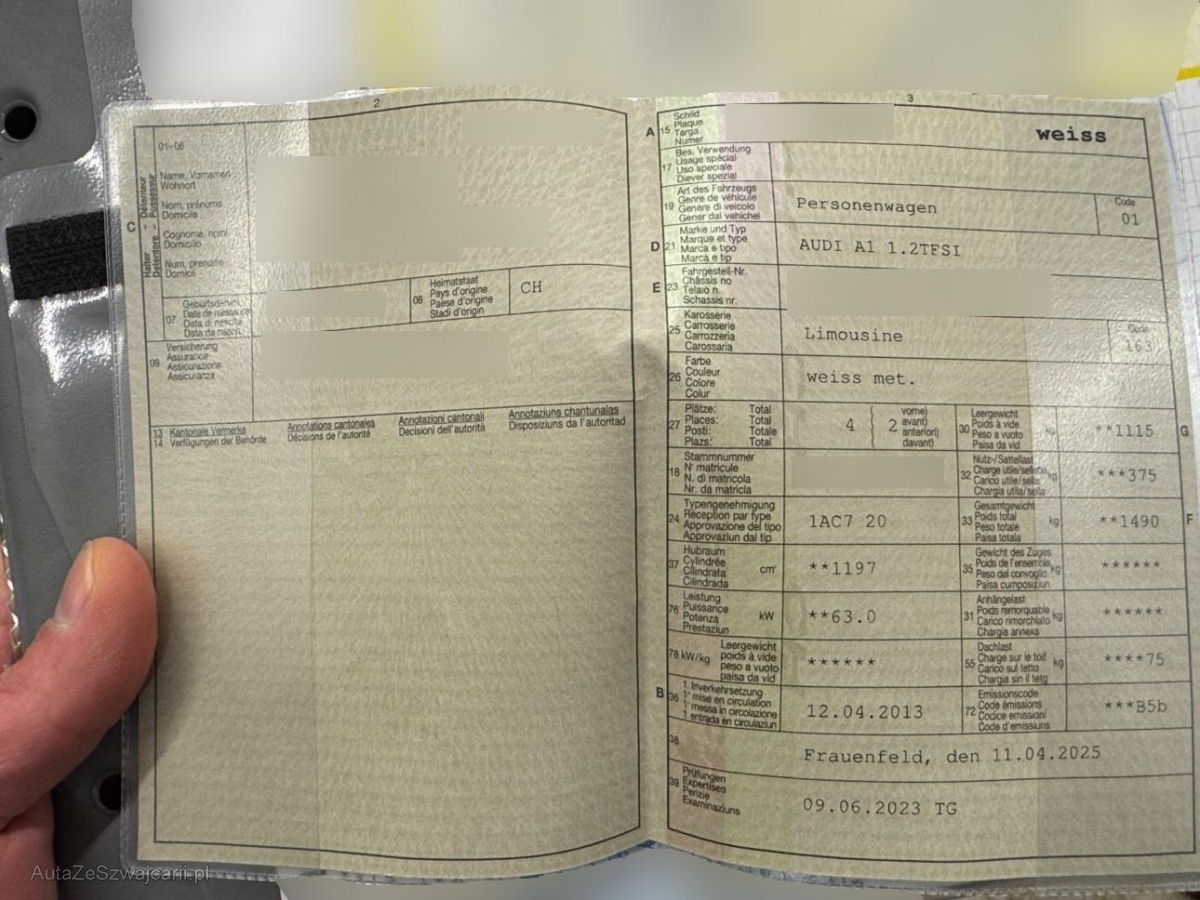 2
01-06
C
Halter - Détenteur
Detentore - Possessur
Name, Vornamen
Wohnort
Nom, prénoms
Domicile
Cognome, nomi
Domicilio
Num, prenums
Domicil
07
Data di nascita
08
Heimatstaat
Pays d'origine
Paese d'origine
Stadi d'origin
CH
09
Versicherung
Assurance
Assicurazione
Assicuranza
13 Kantonale Vermerke
14 Verfügungen der Behörde
Annotations cantonales
Décisions de l'autorité
Annotazioni cantonali
Decisioni dell'autorità
Annotaziuns chantunalas
Disposiziuns da l'autoritad
3
A 15
Schild
Plaque
Targa
Numer
weiss
17
Bes. Verwendung
Usage spécial
Uso speciale
Diever spezial
19
Art des Fahrzeugs
Genre de véhicule
Genere di veicolo
Gener dal vehichel
Personenwagen
Code
01
D 21
Marke und Typ
Marque et type
Marca e tipo
Marca e tip
AUDI A1 1.2TFSI
E 23
Fahrgestell-Nr.
Châssis no
Telaio n.
Schassis nr.
25
Karosserie
Carrosserie
Carrozzeria
Carossaria
Limousine
Code
163
26
Farbe
Couleur
Colore
Colur
weiss met.
27
Plätze: Total
Places: Total
Posti: Totale
Plazs: Total
4
2
vorne)
avant)
anteriori)
davant)
30
Leergewicht
Poids à vide
Peso a vuoto
Paisa da vid
kg
**1115
G
18
Stammnummer
N° matricule
N. di matricola
Nr. da matricla
32
Nutz-/Sattellast
Charge utile/sellette
Carico utile/sella
Chargia utila/sella
kg
***375
24
Typengenehmigung
Réception par type
Approvazione del tipo
Approvaziun dal tip
1AC7 20
33
Gesamtgewicht
Poids total
Peso totale
Paisa totala
kg
**1490
F
37
Hubraum
Cylindrée
Cilindrata
Cilindrada
cm³
**1197
35
Gewicht des Zuges
Poids de l'ensemble
Peso del convoglio
Paisa cumposiziun
kg
******
76
Leistung
Puissance
Potenza
Prestaziun
kW
**63.0
31
Anhängelast
Poids remorquable
Carico rimorchiato
Chargia annexa
kg
******
78 kW/kg
Leergewicht
poids à vide
peso a vuoto
paisa da vid
******
55
Dachlast
Charge sur le toit
Carico sul tetto
Chargia sin il tetg
kg
****75
B 36
1. Inverkehrsetzung
1re mise en circulation
1a messa in circolazione
1. entrada en circulaziun
12.04.2013
72
Emissionscode
Code émissions
Codice emissioni
Code d'emissiuns
***B5b
38
Frauenfeld, den 11.04.2025
39
Prüfungen
Expertises
Perizie
Examinaziuns
09.06.2023 TG
AutaZeSzwajcarii.pl